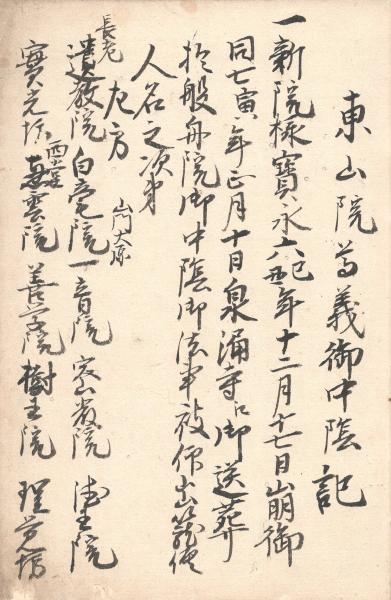 東山院尊義御中陰記
一新院様寶永六己丑年十二月十七日崩御
同七寅年正月十日泉涌寺江御送葬
於般舟院御中陰御法事被仰出籠僧
人名之次第
左方
長老
遣教院 白毫院 一音院 安山教院 德王院
山門大原
寳光坊 西室 喜雲院 善学院 樹王院 理覚坊